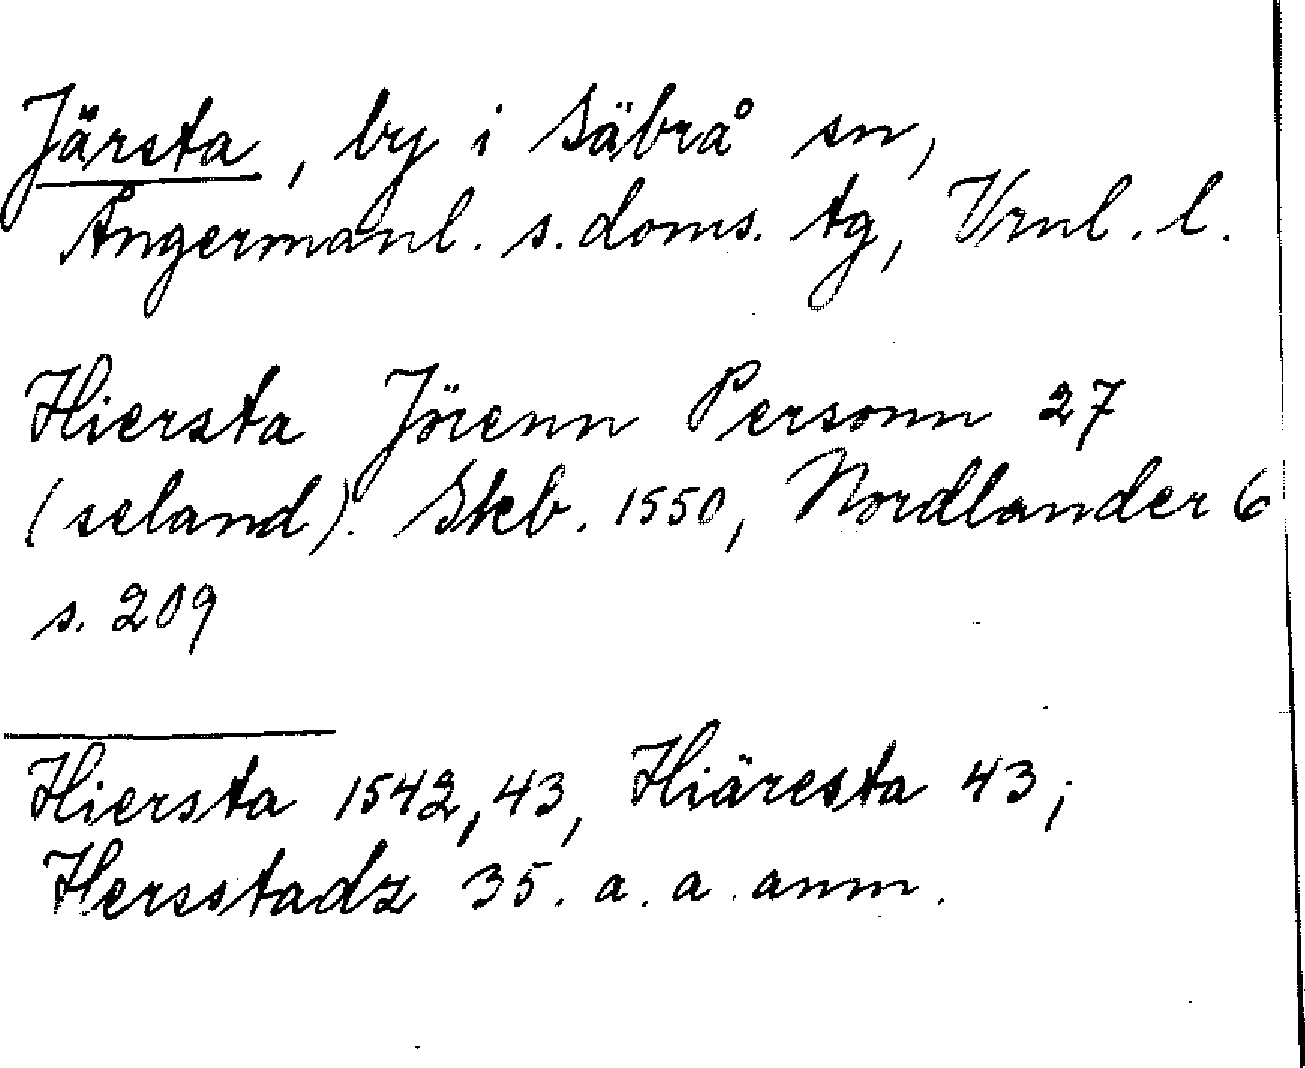 Järsta, by i Säbrå sn,
Ångermanl. s. doms. tg, Vrnl. l.
Hiersta Jörenn Personn 27
(seland). Skb. 1550, Nordlander 6
s. 209
Hiersta 1542, 43, Hiäresta 43;
Hersstadz 35. a. a. anm.